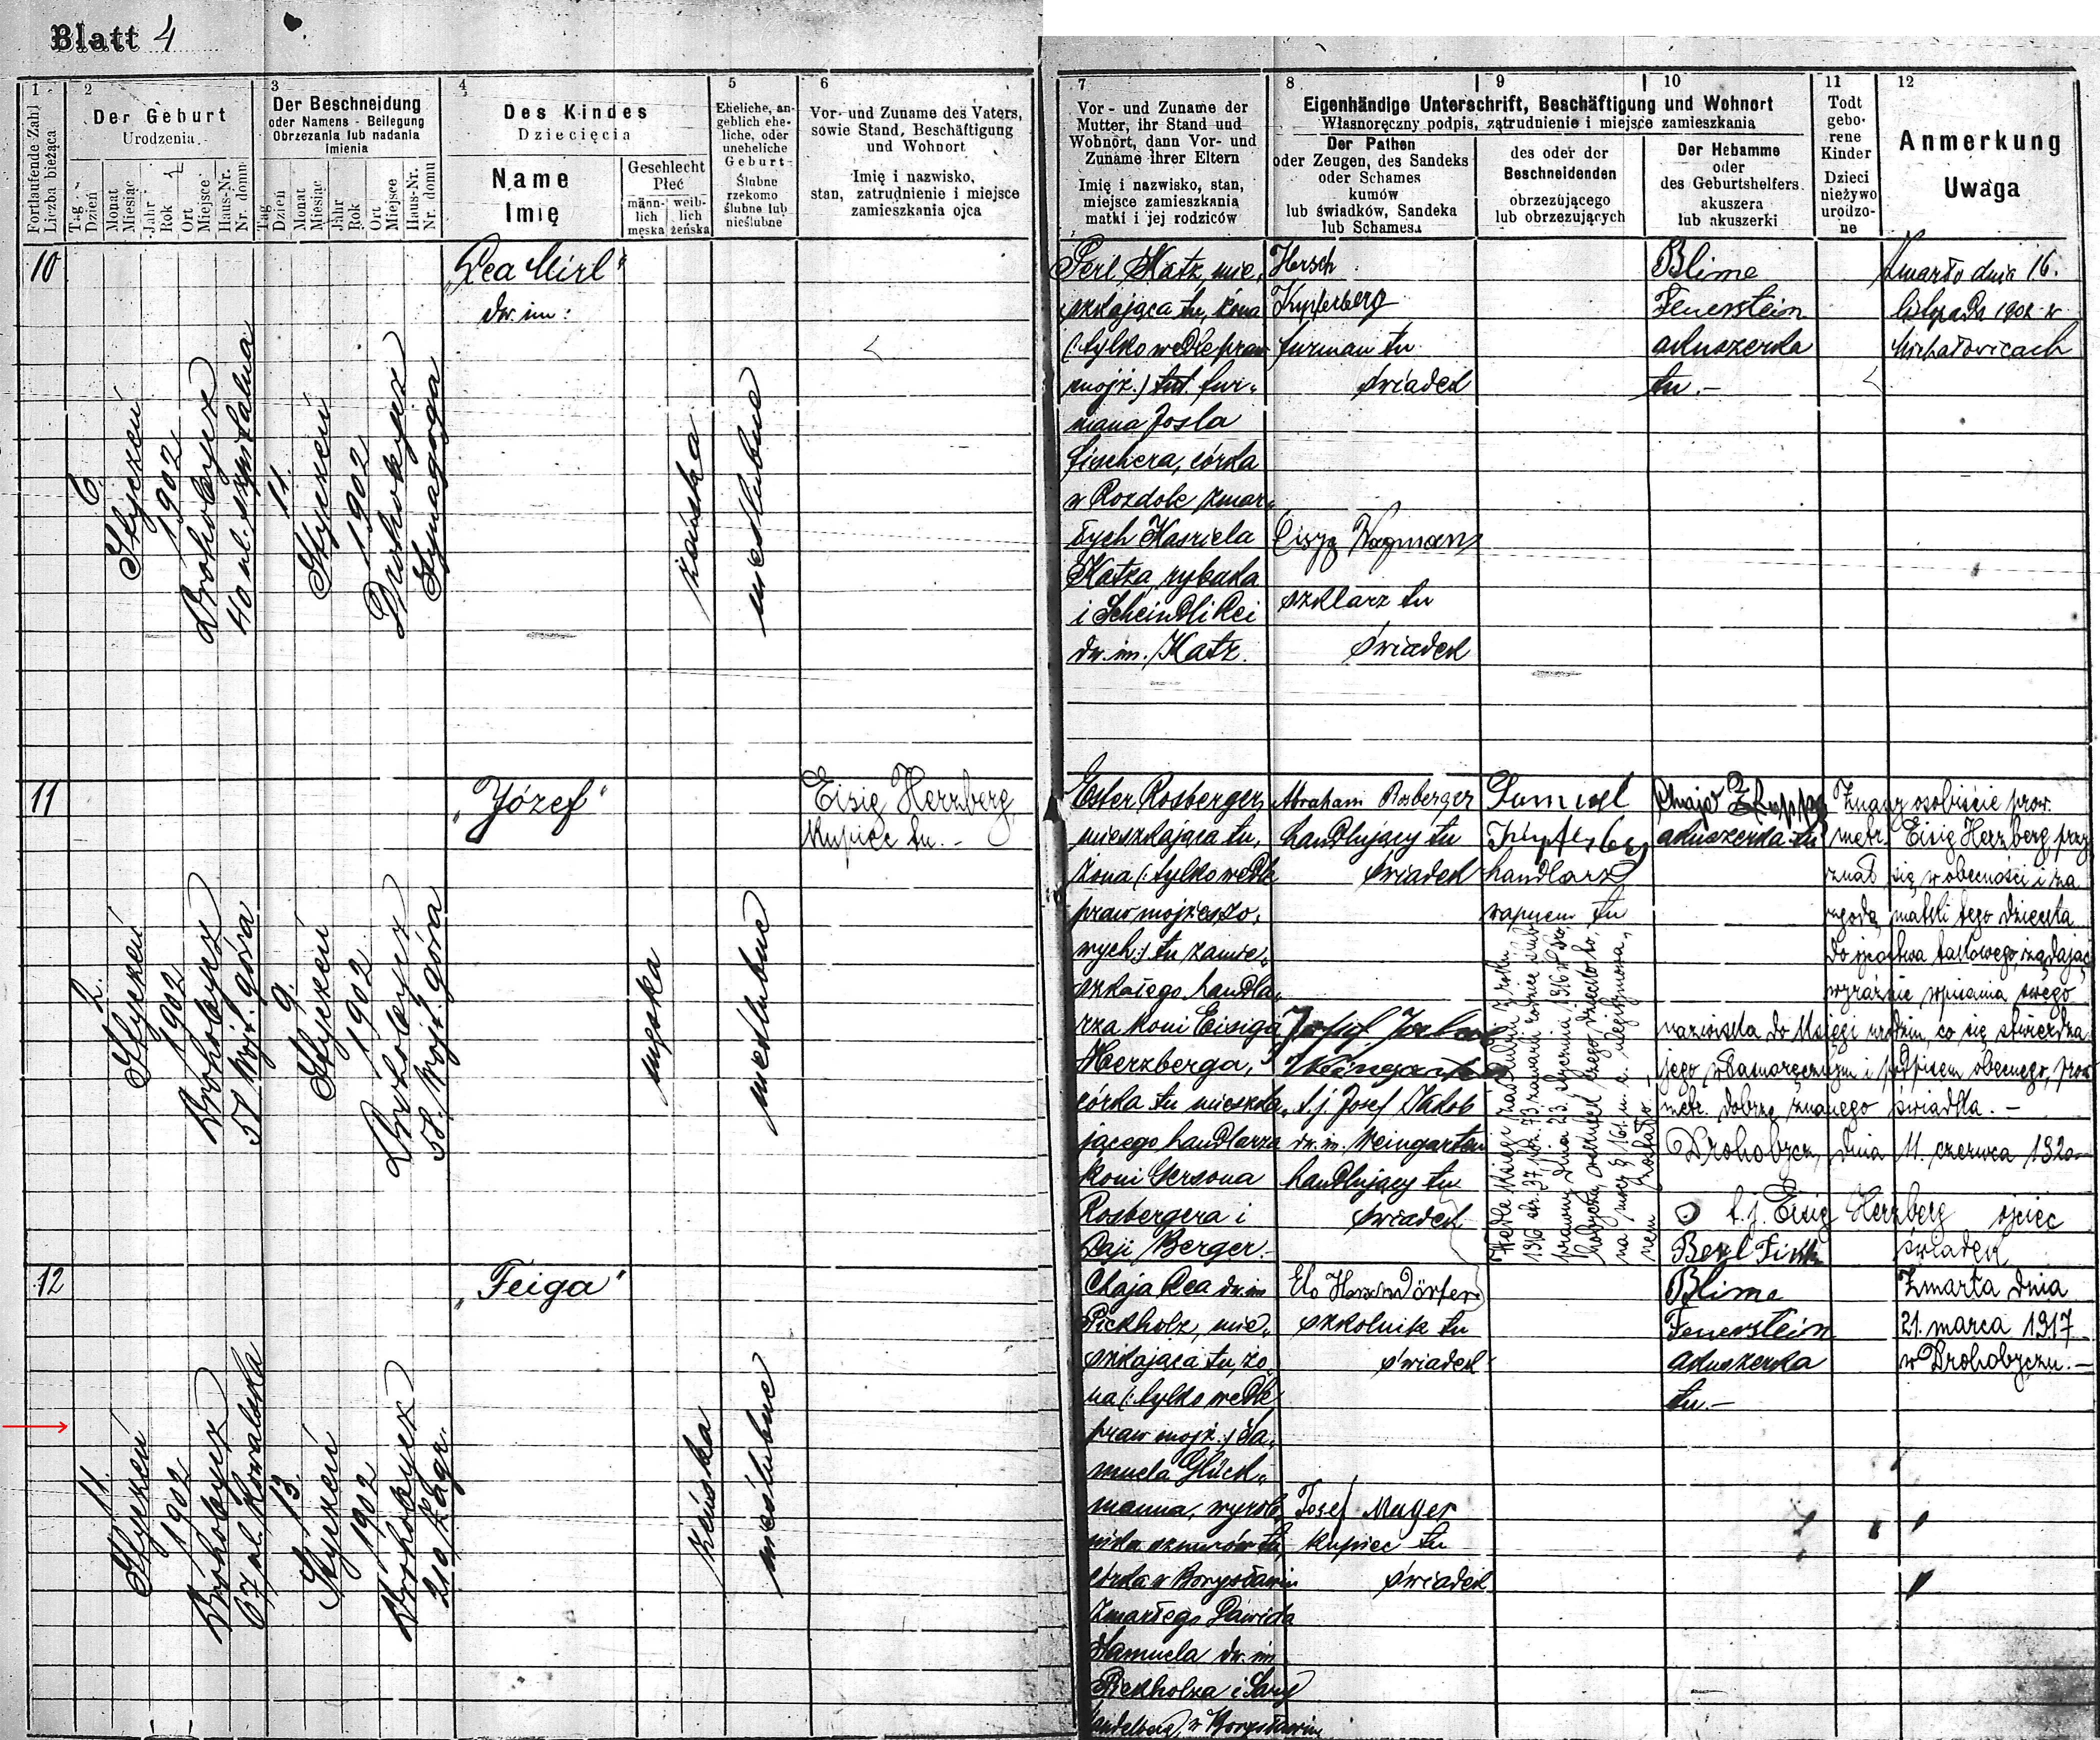 Blatt 4
1
Fortlaufende Zahl
Liczba bieżąca
2
Der Geburt
Urodzenia
Tag
Dzień
Monat
Miesiąc
Jahr
Rok
Ort
Miejsce
Haus-Nr.
Nr. domu
3
Der Beschneidung
oder Namens - Beilegung
Obrzezania lub nadania
Imienia
Tag
Dzień
Monat
Miesiąc
Jahr
Rok
Ort
Miejsce
Haus-Nr.
Nr. domu
4
Des Kindes
Dziecięcia
Name
Imię
Geschlecht
Płeć
männ-
lich
męska
weib-
lich
żeńska
5
Eheliche, an-
geblich ehe-
liche, oder
uneheliche
Geburt
Ślubne
rzekomo
ślubne lub
nieślubne
6
Vor- und Zuname des Vaters,
sowie Stand, Beschäftigung
und Wohnort
Imię i nazwisko,
stan, zatrudnienie i miejsce
zamieszkania ojca
7
Vor - und Zuname der
Mutter, ihr Stand und
Wohnort, dann Vor- und
Zuname ihrer Eltern
Imię i nazwisko, stan,
miejsce zamieszkania
matki i jej rodziców
8
9
10
Eigenhändige Unterschrift, Beschäftigung und Wohnort
Własnoręczny podpis, zątrudnienie i miejsce zamieszkania
Der Pathen
oder Zeugen, des Sandeks
oder Schames
kumów
lub świadków, Sandeka
lub Schamesa
des oder der
Beschneidenden
obrzezującego
lub obrzezujących
Der Hebamme
oder
des Geburtshelfers
akuszera
lub akuszerki
11
Todt
gebo-
rene
Kinder
Dzieci
nieżywo
urodzo-
ne
12
Anmerkung
Uwaga
10
6.
Styczeń
1902
Drohobycz
40 ul. szpitalna
11.
Styczeń
1902
Drohobycz
Synagoga
"Lea Mirl"
dw. im:
żeńska
nieślubne
Perl Katz, mie,
szkająca tu, żona
(: tylko wedle praw
mojż.) tut. fur-
mana Josla
Fischera, córka
w Rozdole zmar-
łych Kasriela
Katza rybaka
i Scheindli Rei
dw. im. Katz.
Hersch
Kupferberg
furman tu
świadek
Eisyg Wagmann
szklarz tu
świadek
Blime
Feuerstein
akuszerka
tu.-
Zmarło dnia 16.
listopada 1902 w
Michałowicach
11
2.
Styczeń
1902
Drohobycz
58 Wojt. góra
9.
Styczeń
1902
Drohobycz
58. Wojt. góra
"Józef"
męska
nieślubne
Eisig Herzberg,
Kupiec tu.-
Ester Rosberger,
mieszkająca tu,
żona (: tylko wedle
praw mojżeszo,
wych:) tu zamie,
szkałego handla,
rza koni Eisiga
Herzberga,
córka tu mieszka,
jącego handlarza
koni Gersona
Rosbergera i
Berger.-
Abraham Rosberger
handlujący tu
świadek
t.j. Josef Jakob
dw. im. Weingarten
handlujący tu
świadek
Samuel
Kupferberg
handlarz
wapnem tu
akuszerka tu
Znany osobiście prow.
metr. Eisig Herzberg przy
znał się w obecności i za
zgodą matki tego dziecka
do ojcostwa takowego, żądając
wyraźnie wpisania swego
nazwiska do Księgi urodzin, co się stwierdza
jego własnoręcznym i podpisem obecnego, prow.
metr. dobrze znanego świadka.-
Drohobycz, dnia 11. czerwca 1920-
t.j. Eisig Herzberg ojciec
świadek
12
11.
Styczeń
1902
Drohobycz
67 ul. Kowalska
13.
Styczeń
1902
Drohobycz
210 Zagr.
"Feiga"
żeńska
nieślubne
Chaja Rea dw. im
Pickholz, mie,
szkająca tu, żo,
na (: tylko wedle
praw mojż.) Sa,
muela Glück,
manna, wyrob,
nika sznurów tu,
córka w Borysławiu
zmarłego Dawida
Samuela dw. im
Pickholza i Sary
w Borysławiu
szkolnik tu
świadek
Josef Mayer
kupiec tu
świadek
Blime
Feuerstein
akuszerka
tu.-
Zmarła dnia
21. marca 1917
w Drohobyczu.-